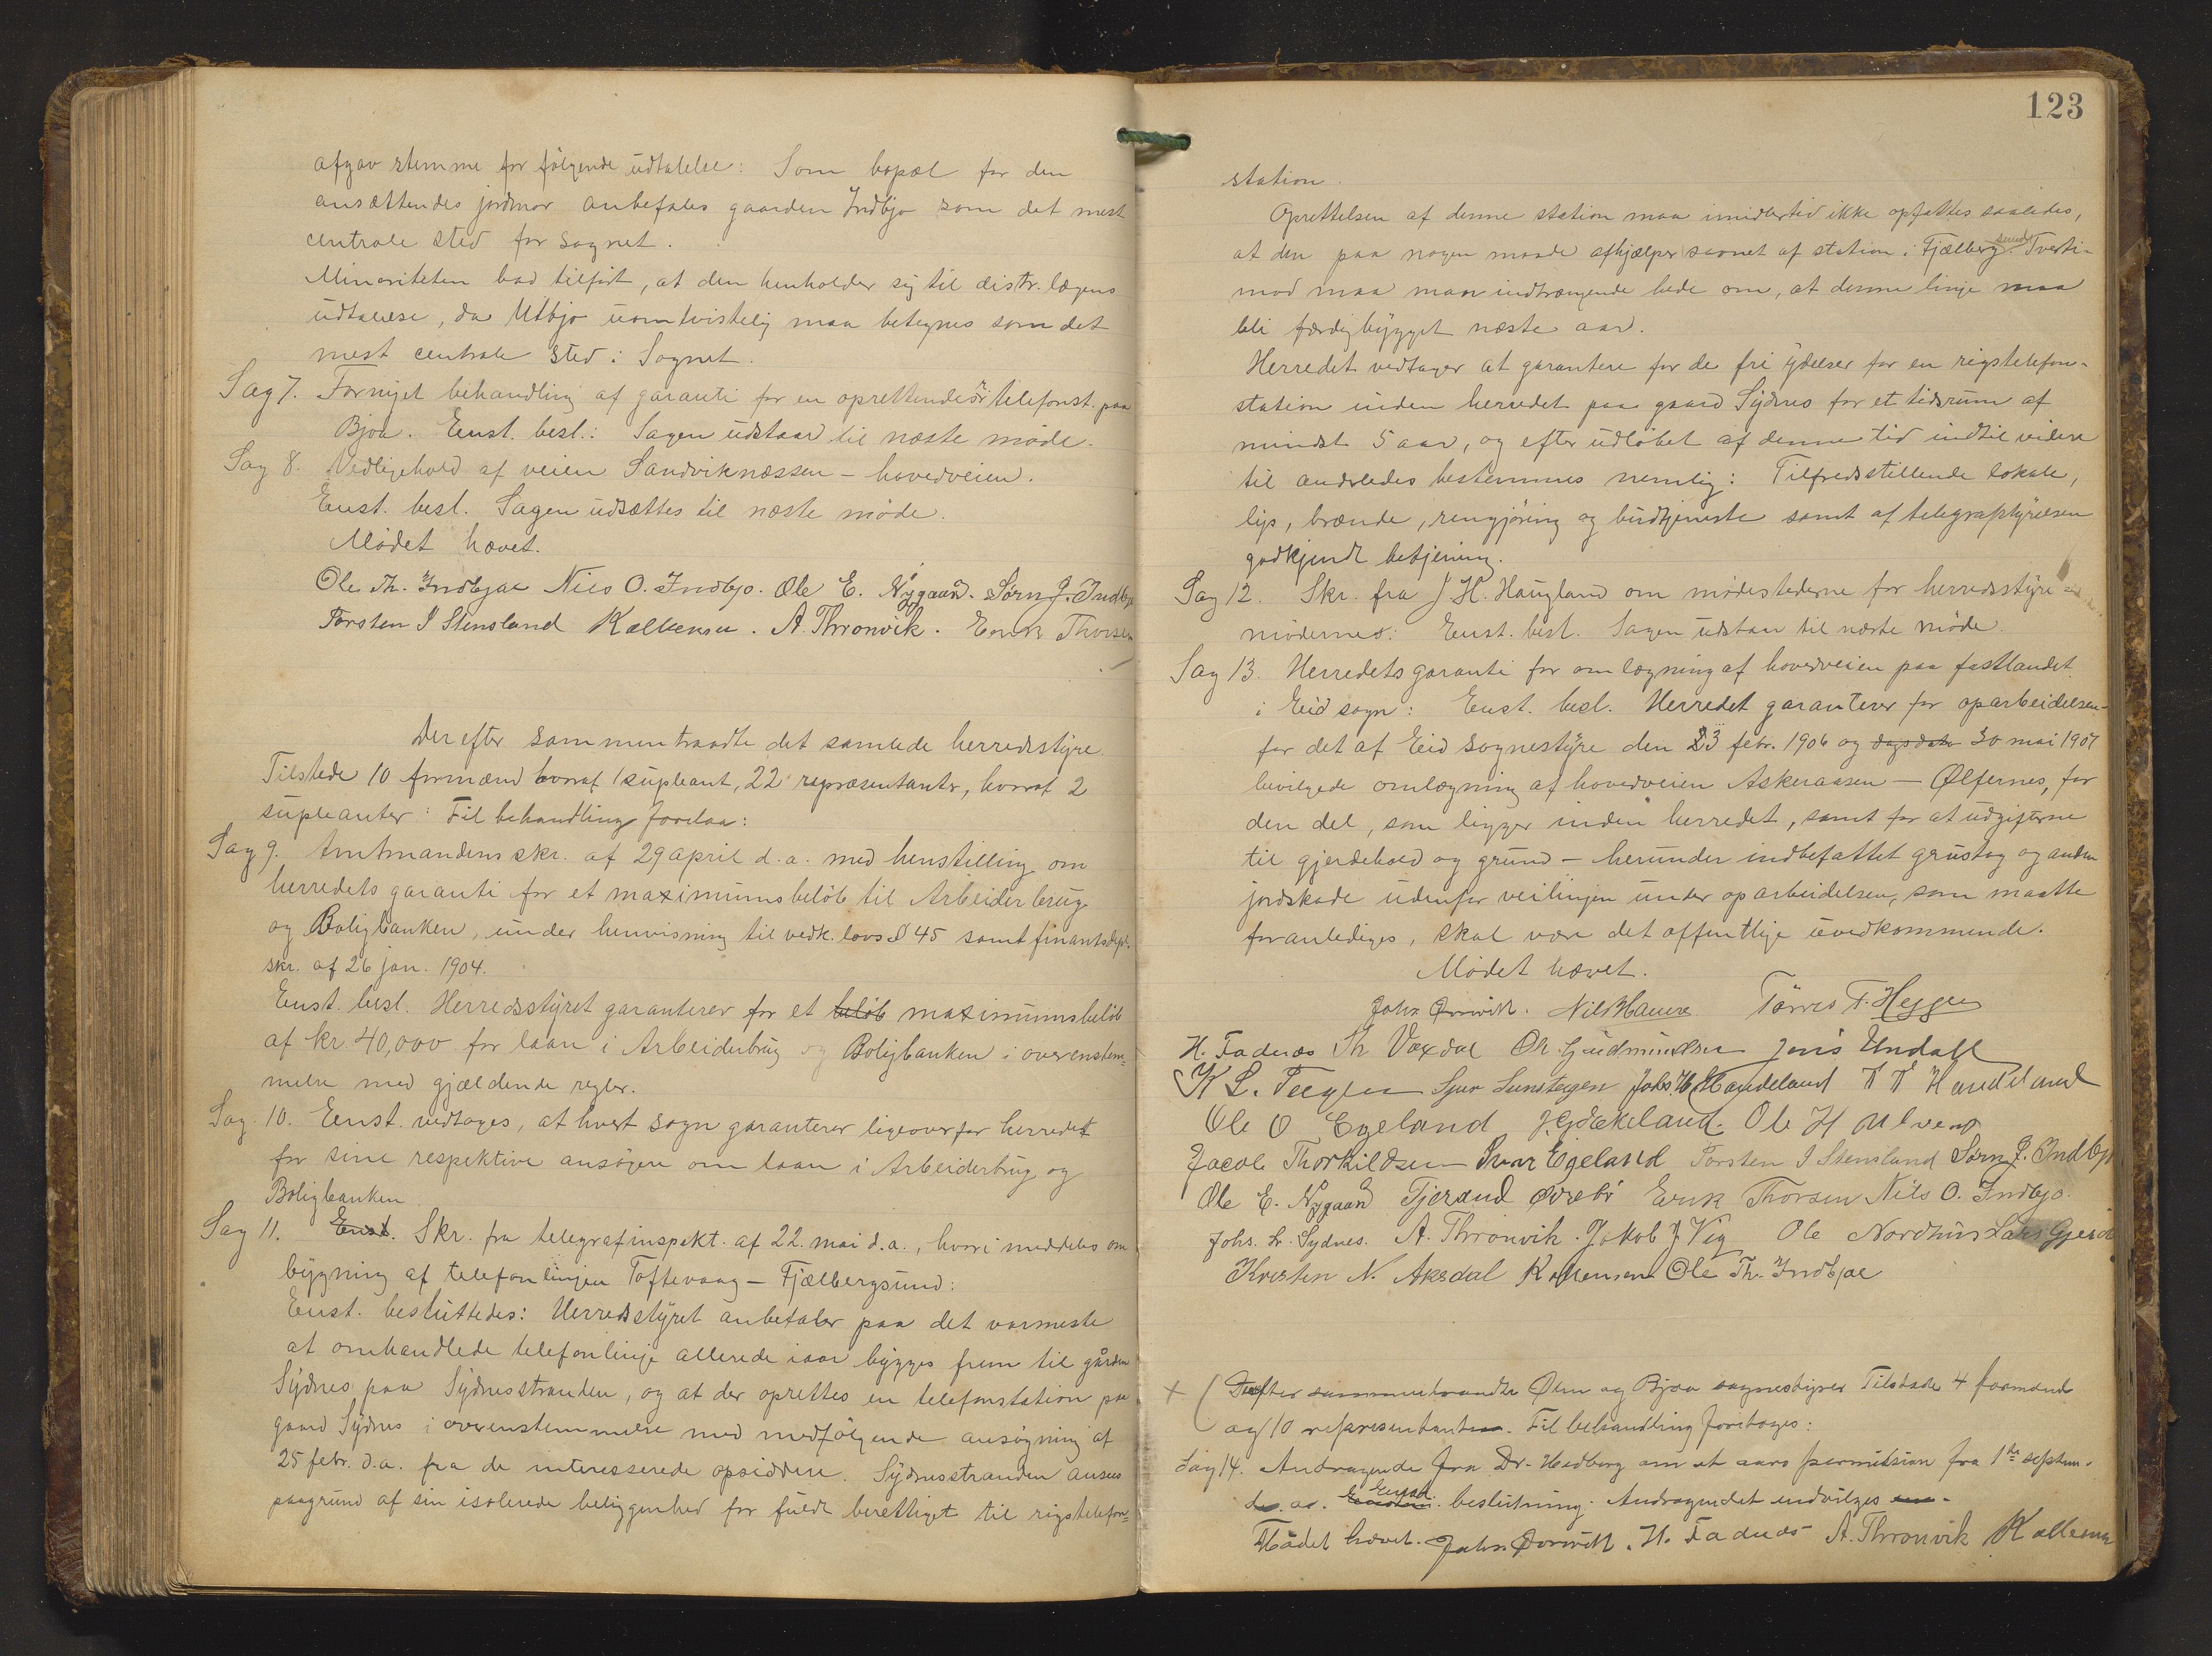 afgav stemme for følgende udtalelse: Som bopæl for den
ansættendes jordmor anbefales gaarden Indbjo som det mest
centrale sted for sognet.
Minoriteten bad tilført, at den henholder sig til distr. lægens
udtalelse, da Utbjo uomtvistelig maa betegnes som det
mest centrale sted i Sognet.
Sag 7. Fornyet behandling af garanti for en oprettendes telefonst. paa
Bjoa. Enst. besl.: Sagen udstaar til næste møde.
Sag 8. Vedligehold af veien Sandviknæssen - hovedveien.
Enst. besl. Sagen udsættes til næste møde.
Mødet hævet.
Ole Th. Indbjoe Nils O. Indbjo. Ole E. Nygaard. Sørn J. Indbjo
Torsten I Stensland Kallensen. A. Thronvik. Erik Thorsen
Derefter sammentraadte det samlede herredsstyre.
Tilstede 10 formænd hvoraf 1 supleant, 22 repræsentanter, hvoraf 2
supleanter: Til behandling forelaa:
Sag 9. Amtmandens skr. af 29 april d.a. med henstilling om
herredets garanti for et maximumsbeløb til Arbeiderbrug
og Boligbanken, under henvisning til vedk. lovs § 45 samt finantsdept.
skr. af 26 jan. 1904.
Enst. besl. Herredsstyret garanterer for et beløb maximumsbeløb
af kr. 40,000 for laan i Arbeiderbrug og Boligbanken i overenstem=
melse med gjældende regler.
Sag 10. Enst. vedtages, at hvert sogn garanterer ligeoverfor herredet
for sine respektive ansøgere om laan i Arbeiderbrug og
Boligbanken
Sag 11. Enst. Skr. fra telegrafinspekt. af 22. mai d.a., hvori meddeles om
bygning af telefonlinjen Toftevaag - Fjælbergsund:
Enst. besluttedes: Herredsstyret anbefaler paa det varmeste
at omhandlede telefonlinje allerede iaar bygges frem til gården
Sydnes paa Sydnesstranden, og at der oprettes en telefonstation paa
gaard Sydnes i overenstemmelse med medfølgende ansøgning af
25 febr. d.a. fra de interesserede opsiddere. Sydnesstranden ansees
paagrund af sin isolerede beliggenhed for fuldt berettiget til rigstelefon=
123
station.
Oprettelsen af denne station maa imidlertid ikke opfattes saaledes,
at den paa nogen maade afhjælper savnet af station i Fjælbergsund. Tverti-
mod maa man indtrængende bede om, at denne linje maa
bli færdigbygget næste aar.
Herredet vedtager at garantere for de fri ydelser for en rigstelefon-
station inden herredet paa gaard Sydnes for et tidsrum af
mindst 5 aar, og efter udløbet af denne tid indtil videre
til anderledes bestemmes nemlig: Tilfredsstillende lokale,
lys, brænde, rengjøring og budtjeneste samt af telegrafstyrelsen
godkjendt betjening.
Sag 12. Skr. fra J H. Haugland om mødestederne for herredsstyre-
mødernes: Enst. besl. Sagen udstaar til næste møde.
Sag 13. Herredets garanti for omlægning af hovedveien paa fastlandet
i Eid sogn: Enst. besl. Herredet garanterer for oparbeidelsen
for det af Eid sognestyre den 23 febr. 1906 og dagsdato 30 mai 1907
bevilgede omlægning af hovedveien Askeraasen - Ølfernes, for
den del, som ligger inden herredet, samt for at udgifterne
til gjerdehold og grund - herunder indbefattet grustag og anden
jordskade udenfor veilinjen under oparbeidelsen, som maatte
foranlediges, skal være det offentlige uvedkommende.
Mødet hævet.
Johs. Ørnvik. Nils Tørres T. Heggen
H. Fadnes Th Vaxdal Ol. Gudmundsen Undall
K S. Johs. H. Handeland Handeland
Ole O Egeland Ole H Ulven
Jacob Thorkildsen Ivar Eigeland Torsten I Stensland Sørn J. Indbjo
Ole E. Nygaard Tjerand Øvrebø Erik Thorsen Nils O. Indbjo.
Johs. Sydnes. A. Thronvik. Jakob J Vig Ole Nordhus Lars Gjerde
Kristen N. Aksdal Kallensen Ole Th. Indbjoe
+ ( Derefter sammentraadte Ølen og Bjoa sognestyrer Tilstede 4 formænd
og 10 repræsentanter. Til behandling foretages:
Sag 14. Andragende fra Dr. Hedberg om et aars permitsion fra 1ste septem.
d. aa. Enst. beslutning. Andragendet indvilges
Mødet hævet. Johs. Ørnvik. H. Fadnes A. Thronvik Kallensen